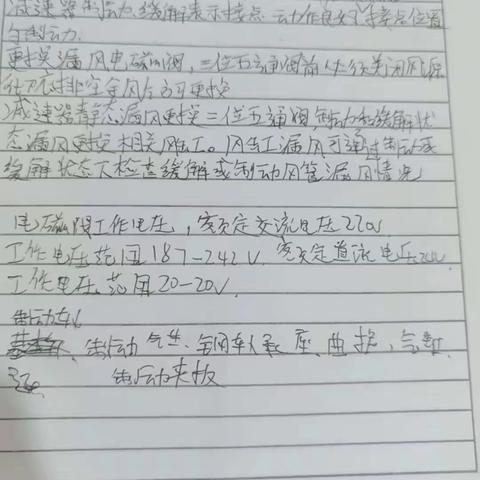 减速器制动,缓解表示接点动作良好,接点位置
与制动.
更换漏风电磁阀,三位五通阀前必须关闭风源
往下排空余风后方可更换
减速器静态漏风更换三位五通阀,制动和缓解状
态漏风更换相关风缸。风缸漏风可通过制动或
缓解状态下检查缓解或制动风管漏风情况
电磁阀工作电压,额定交流电压220V
工作电压范围187-242V.额定直流电压24V.
工作电压范围20-20V.
制动
制动气缸、钢轨承座、曲拐,气缸
制动夹板